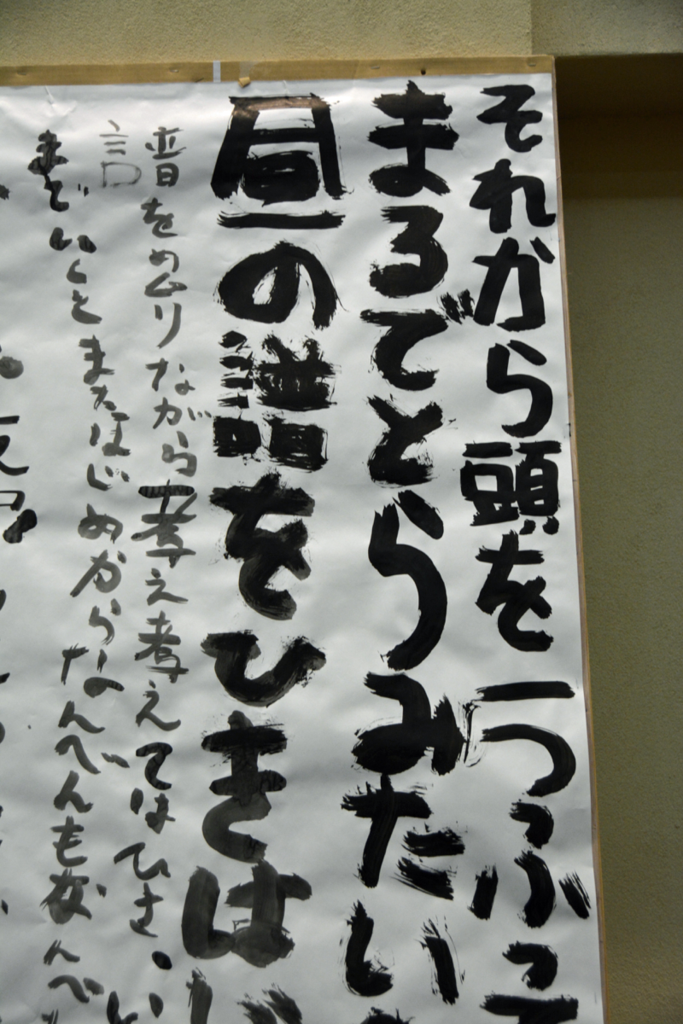 それから頭を一つふって
まるでとらみたい
昼の譜をひきはじ
譜をめくりながら考え考えてはひき、い
までいくとまたはじめからなんべんもなんべ